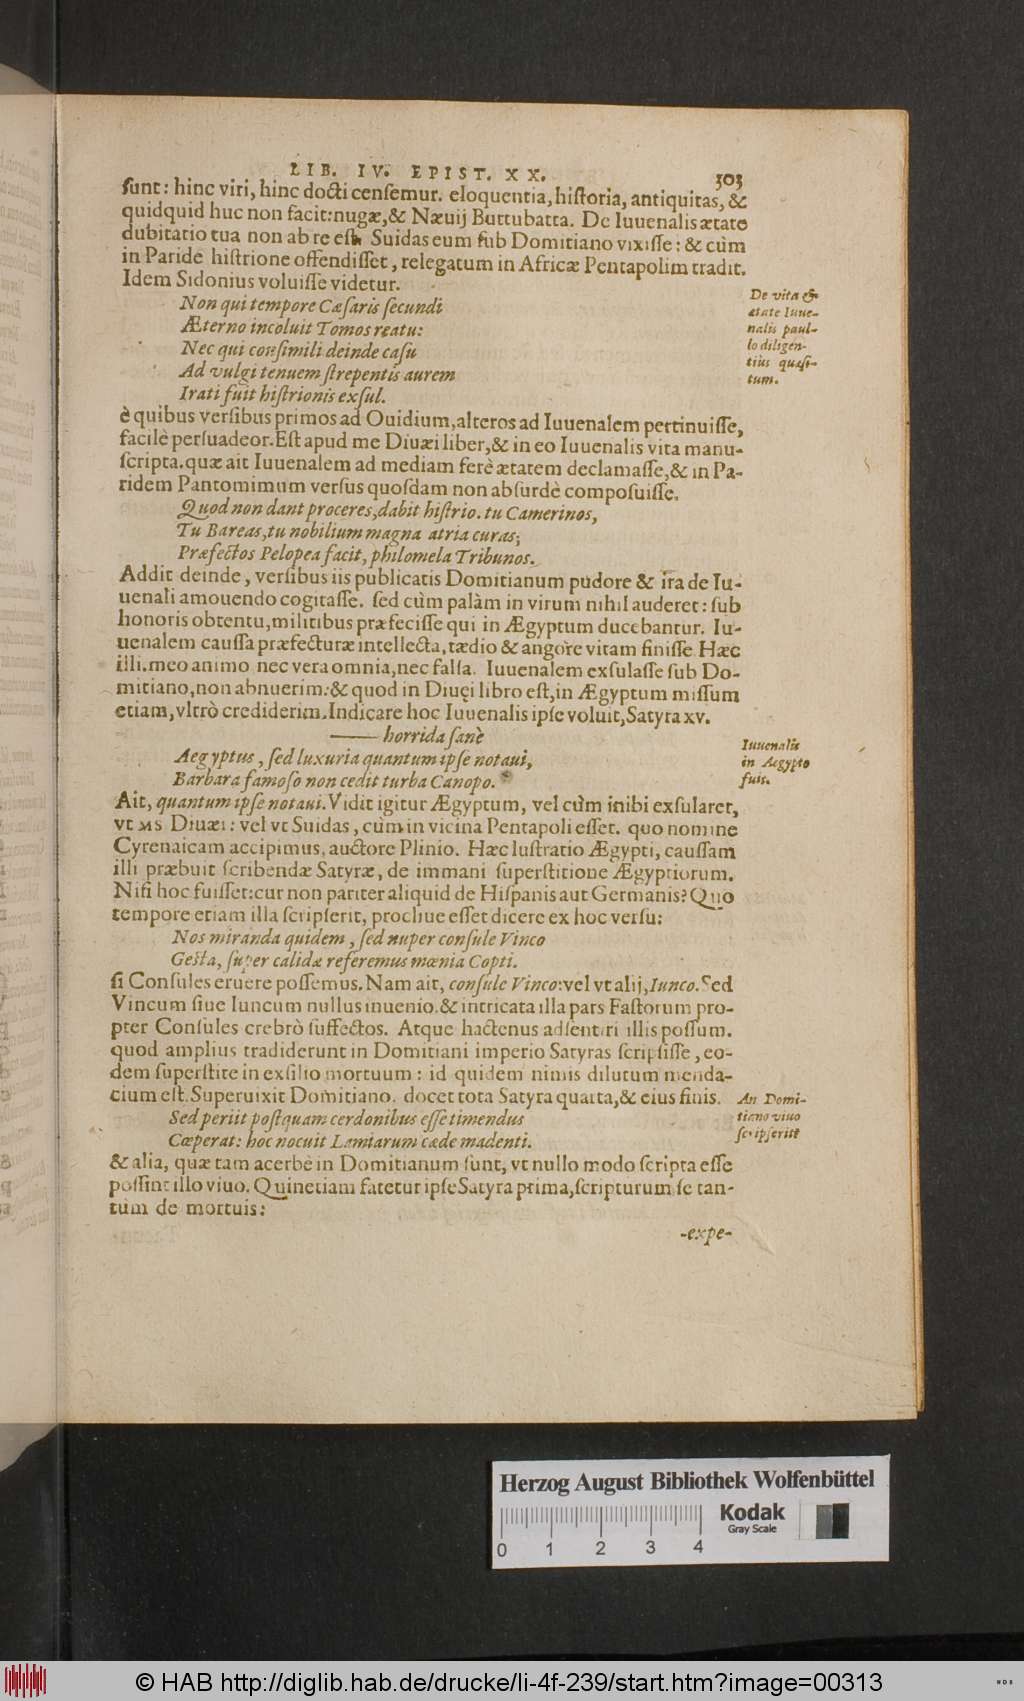 LIB. IV. EPIST. XX. 303
ſunt: hinc viri, hinc docti cenſemur. eloquentia, hiſtoria, antiquitas, &
quidquid huc non facit: nugæ, & Næuij Buttubatta. De Iuuenalis ætate
dubitatio tua non ab re eſt. Suidas eum ſub Domitiano vixiſſe: & cùm
in Paride hiſtrione offendiſſet, relegatum in Africæ Pentapolim tradit.
Idem Sidonius voluiſſe videtur.
Non qui tempore Cæſaris ſecundi
Æterno incoluit Tomos reatu:
Nec qui conſimili deinde caſu
Ad vulgi tenuem ſtrepentis aurem
Irati fuit hiſtrionis exſul.
De vita &
ætate Iuue-
nalis paul-
lo diligen-
tiùs quæſi-
tum.
è quibus verſibus primos ad Ouidium, alteros ad Iuuenalem pertinuiſſe,
facilè perſuadeor. Eſt apud me Diuæi liber, & in eo Iuuenalis vita manu-
ſcripta. quæ ait Iuuenalem ad mediam ferè ætatem declamaſſe, & in Pa-
ridem Pantomimum verſus quoſdam non abſurdè compoſuiſſe.
Quod non dant proceres, dabit hiſtrio. tu Camerinos,
Tu Bareas, tu nobilium magna atria curas;
Præfectos Pelopea facit, philomela Tribunos.
Addit deinde, verſibus iis publicatis Domitianum pudore & ira de Iu-
uenali amouendo cogitaſſe. ſed cùm palàm in virum nihil auderet: ſub
honoris obtentu, militibus præfeciſſe qui in Ægyptum ducebantur. Iu-
uenalem cauſſa præfecturæ intellecta, tædio & angore vitam finiſſe. Hæc
illi. meo animo nec vera omnia, nec falſa. Iuuenalem exſulaſſe ſub Do-
mitiano, non abnuerim: & quod in Diuęi libro eſt, in Ægyptum miſſum
etiam, vltrò crediderim. Indicare hoc Iuuenalis ipſe voluit, Satyra xv.
—— horrida ſanè
Aegyptus, ſed luxuria quantum ipſe notaui,
Barbara famoſo non cedit turba Canopo.
Iuuenalis
in Aegypto
fuit.
Ait, quantum ipſe notaui. Vidit igitur Ægyptum, vel cùm inibi exſularet,
vt MS Diuæi: vel vt Suidas, cùm in vicina Pentapoli eſſet. quo nomine
Cyrenaicam accipimus, auctore Plinio. Hæc luſtratio Ægypti, cauſſam
illi præbuit ſcribendæ Satyræ, de immani ſuperſtitione Ægyptiorum.
Niſi hoc fuiſſet: cur non pariter aliquid de Hiſpanis aut Germanis? Quo
tempore etiam illa ſcripſerit, procliue eſſet dicere ex hoc verſu:
Nos miranda quidem, ſed nuper conſule Vinco
Geſta, ſuper calidæ referemus mœnia Copti.
ſi Conſules eruere poſſemus. Nam ait, conſule Vinco: vel vt alij, Iunco. Sed
Vincum ſiue Iuncum nullus inuenio. & intricata illa pars Faſtorum pro-
pter Conſules crebrò ſuffectos. Atque hactenus adſentiri illis poſſum.
quod amplius tradiderunt in Domitiani imperio Satyras ſcripſiſſe, eo-
dem ſuperſtite in exſilio mortuum: id quidem nimis dilutum menda-
cium eſt. Superuixit Domitiano. docet tota Satyra quarta, & eius finis.
Sed periit poſtquam cerdonibus eſſe timendus
Cœperat: hoc nocuit Lamiarum cæde madenti.
An Domi-
tiano viuo
ſcripſerit?
& alia, quæ tam acerbè in Domitianum ſunt, vt nullo modo ſcripta eſſe
poſſint illo viuo. Quinetiam fatetur ipſe Satyra prima, ſcripturum ſe tan-
tùm de mortuis:
-expe-
Herzog August Bibliothek Wolfenbüttel
Kodak
Gray Scale
0 1 2 3 4
© HAB http://diglib.hab.de/drucke/li-4f-239/start.htm?image=00313